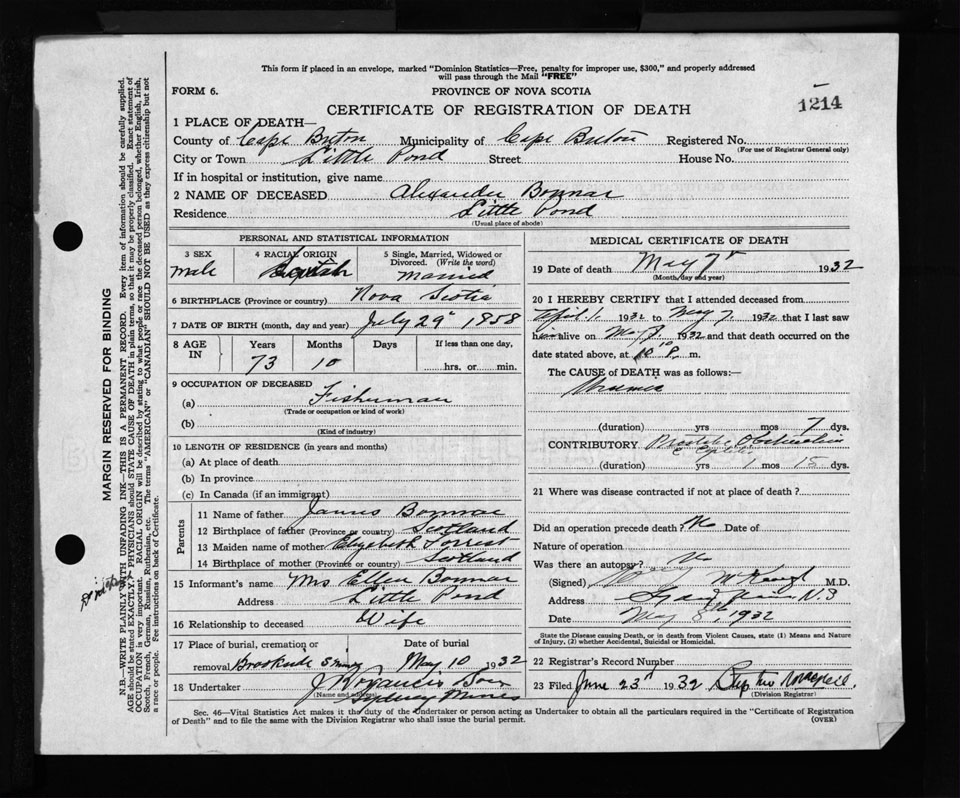 This form if placed in an envelope, marked "Dominion Statistics—Free, penalty for improper use, $300," and properly addressed
will pass through the Mail "FREE"
FORM 6.
PROVINCE OF NOVA SCOTIA
1214
CERTIFICATE OF REGISTRATION OF DEATH
1 PLACE OF DEATH—
County of Cape Breton Municipality of Cape Breton Registered No.
(For use of Registrar General only)
City or Town Little Pond Street House No.
If in hospital or institution, give name
2 NAME OF DECEASED Alexander Bonnar
Residence Little Pond
(Usual place of abode)
PERSONAL AND STATISTICAL INFORMATION
3 SEX male
4 RACIAL ORIGIN
5 Single, Married, Widowed or Divorced. (Write the word) Married
6 BIRTHPLACE (Province or country) Nova Scotia
7 DATE OF BIRTH (month, day and year) July 29" 1958
8 AGE IN Years 73 Months 10 Days If less than one day, hrs. or min.
9 OCCUPATION OF DECEASED
(a) Fisherman
(Trade or occupation or kind of work)
(b)
(Kind of industry)
10 LENGTH OF RESIDENCE (in years and months)
(a) At place of death
(b) In province
(c) In Canada (if an immigrant)
Parents
11 Name of father James Bonnar
12 Birthplace of father (Province or country) Scotland
13 Maiden name of mother Elizabeth Forrest
14 Birthplace of mother (Province or country) Scotland
15 Informant's name Mrs Ellen Bonnar
Address Little Pond
16 Relationship to deceased Wife
17 Place of burial, cremation or Date of burial
removal Brookside May 10 1932
18 Undertaker J
(Name and address) Sydney Mines
MEDICAL CERTIFICATE OF DEATH
19 Date of death May 7" 1932
(Month, day and year)
20 I HEREBY CERTIFY that I attended deceased from
April 1 1932 to May 7 1932 that I last saw
him alive on May 1932 and that death occurred on the
date stated above, at 10 P. m.
The CAUSE of DEATH was as follows:—
Uraemia
(duration) yrs mos 7 dys.
CONTRIBUTORY Prostatic Obstruction
(duration) yrs 1 mos 15 dys.
21 Where was disease contracted if not at place of death?
Did an operation precede death? No Date of
Nature of operation
Was there an autopsy? No
(Signed) M.D.
Address Sydney Mines N.S
Date May 8th, 1932
State the Disease causing Death, or in death from Violent Causes, state (1) Means and Nature
of Injury, (2) whether Accidental, Suicidal or Homicidal.
22 Registrar's Record Number
23 Filed June 23rd 1932
(Division Registrar)
Sec. 46—Vital Statistics Act makes it the duty of the Undertaker or person acting as Undertaker to obtain all the particulars required in the "Certificate of Registration
of Death" and to file the same with the Division Registrar who shall issue the burial permit. (OVER)
MARGIN RESERVED FOR BINDING
N.B.—WRITE PLAINLY WITH UNFADING INK—THIS IS A PERMANENT RECORD. Every item of information should be carefully supplied.
AGE should be stated EXACTLY. PHYSICIANS should STATE CAUSE OF DEATH in plain terms, so that it may be properly classified. Exact statement of
OCCUPATION is very important. RACIAL ORIGIN will be described by stating to what people or race the deceased person belonged, whether English, Irish,
Scotch, French, German, Russian, Ruthenian, etc. The terms "AMERICAN" or "CANADIAN" SHOULD NOT BE USED as they express citizenship but not
a race or people. See instructions on back of Certificate.